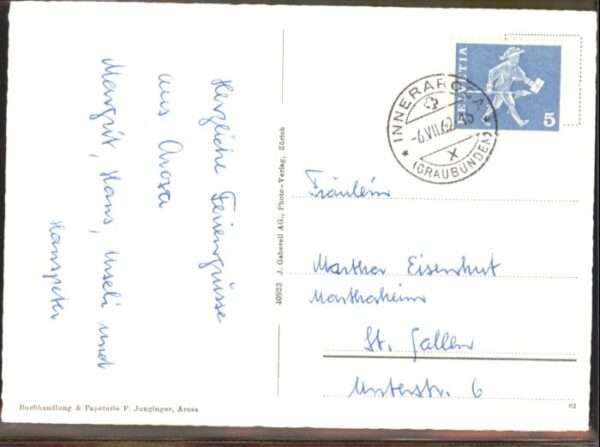 Herzliche Feriengrüsse
aus Arosa
Margrit, Hans, Urseli und
Hanspeter
40923 J. Gaberell AG., Photo-Verlag, Zürich
HELVETIA
5
INNERAROSA
-6.VII.62
X
(GRAUBÜNDEN)
Fräulein
Martha Eisenhut
Marthaheim
St. Gallen
Unterstr. 6
Buchhandlung & Papeterie F. Junginger, Arosa